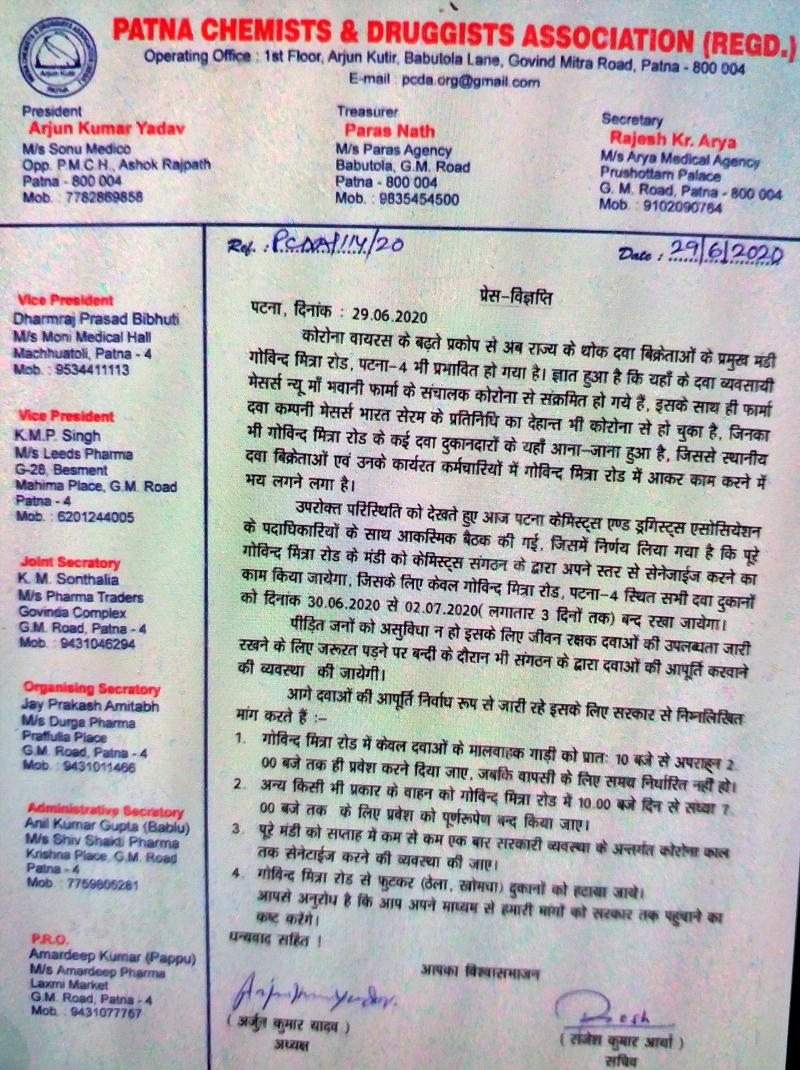 PATNA CHEMISTS & DRUGGISTS ASSOCIATION (REGD.)
Operating Office : 1st Floor, Arjun Kutir, Babutola Lane, Govind Mitra Road, Patna - 800 004
E-mail : pcda.org@gmail.com
Arjun Kutir
PATNA
President
Arjun Kumar Yadav
M/s Sonu Medico
Opp. P.M.C.H., Ashok Rajpath
Patna - 800 004
Mob. : 7782869858
Treasurer
Paras Nath
M/s Paras Agency
Babutola, G.M. Road
Patna - 800 004
Mob. : 9835454500
Secretary
Rajesh Kr. Arya
M/s Arya Medical Agency
Prushottam Palace
G. M. Road, Patna - 800 004
Mob. : 9102090764
Ref. : PCDA/114/20
Date : 29/6/2020
Vice President
Dharmraj Prasad Bibhuti
M/s Moni Medical Hall
Machhuatoli, Patna - 4
Mob. : 9534411113
Vice President
K.M.P. Singh
M/s Leeds Pharma
G-28, Besment
Mahima Place, G.M. Road
Patna - 4
Mob. : 6201244005
Joint Secratory
K. M. Sonthalia
M/s Pharma Traders
Govinda Complex
G.M. Road, Patna - 4
Mob. : 9431046294
Organising Secratory
Jay Prakash Amitabh
M/s Durga Pharma
Praffulla Place
G.M. Road, Patna - 4
Mob. : 9431011466
Administrative Secratory
Anil Kumar Gupta (Bablu)
M/s Shiv Shakti Pharma
Krishna Place, G.M. Road
Patna - 4
Mob. : 7759805281
P.R.O.
Amardeep Kumar (Pappu)
M/s Amardeep Pharma
Laxmi Market
G.M. Road, Patna - 4
Mob. : 9431077767
प्रेस-विज्ञप्ति
पटना, दिनांक : 29.06.2020
कोरोना वायरस के बढ़ते प्रकोप से अब राज्य के थोक दवा बिक्रेताओं के प्रमुख मंडी
गोविन्द मित्रा रोड, पटना-4 भी प्रभावित हो गया है। ज्ञात हुआ है कि यहाँ के दवा व्यवसायी
मेसर्स न्यू माँ भवानी फार्मा के संचालक कोरोना से संक्रमित हो गये हैं, इसके साथ ही फार्मा
दवा कम्पनी मेसर्स भारत सेरम के प्रतिनिधि का देहान्त भी कोरोना से हो चुका है, जिनका
भी गोविन्द मित्रा रोड के कई दवा दुकानदारों के यहाँ आना-जाना हुआ है, जिससे स्थानीय
दवा बिक्रेताओं एवं उनके कार्यरत कर्मचारियों में गोविन्द मित्रा रोड में आकर काम करने में
भय लगने लगा है।
उपरोक्त परिस्थिति को देखते हुए आज पटना केमिस्ट्स एण्ड ड्रगिस्ट्स एसोसियेशन
के पदाधिकारियों के साथ आकस्मिक बैठक की गई, जिसमें निर्णय लिया गया है कि पूरे
गोविन्द मित्रा रोड के मंडी को केमिस्ट्स संगठन के द्वारा अपने स्तर से सेनेजाईज करने का
काम किया जायेगा, जिसके लिए केवल गोविन्द मित्रा रोड, पटना-4 स्थित सभी दवा दुकानों
को दिनांक 30.06.2020 से 02.07.2020( लगातार 3 दिनों तक) बन्द रखा जायेगा।
पीड़ित जनों को असुविधा न हो इसके लिए जीवन रक्षक दवाओं की उपलब्धता जारी
रखने के लिए जरूरत पड़ने पर बन्दी के दौरान भी संगठन के द्वारा दवाओं की आपूर्ति करवाने
की व्यवस्था की जायेगी।
आगे दवाओं की आपूर्ति निर्वाध रूप से जारी रहे इसके लिए सरकार से निम्नलिखित
मांग करते हैं :–
1. गोविन्द मित्रा रोड में केवल दवाओं के मालवाहक गाड़ी को प्रातः 10 बजे से अपराहन 2.
00 बजे तक ही प्रवेश करने दिया जाए, जबकि वापसी के लिए समय निर्धारित नहीं हो।
2. अन्य किसी भी प्रकार के वाहन को गोविन्द मित्रा रोड में 10.00 बजे दिन से संध्या 7.
00 बजे तक के लिए प्रवेश को पूर्णरूपेण बन्द किया जाए।
3. पूरे मंडी को सप्ताह में कम से कम एक बार सरकारी व्यवस्था के अन्तर्गत कोरोना काल
तक सेनेटाईज करने की व्यवस्था की जाए।
4. गोविन्द मित्रा रोड से फुटकर (ठेला, खोमचा) दुकानों को हटाया जाये।
आपसे अनुरोध है कि आप अपने माध्यम से हमारी मांगों को सरकार तक पहुंचाने का
कष्ट करेंगे।
धन्यवाद सहित !
आपका विश्वासभाजन
( अर्जुन कुमार यादव )
अध्यक्ष
( राजेश कुमार आर्या )
सचिव